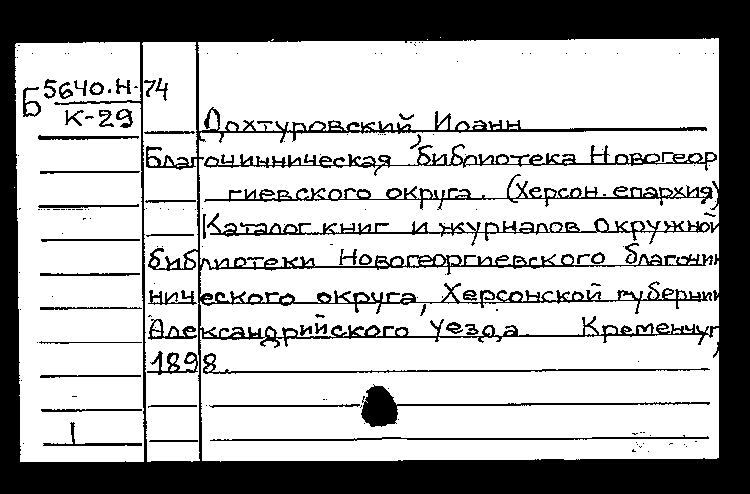 Б 5640.Н-74
К-29
Дохтуровский, Иоанн
Благочинническая библиотека Новогеор
гиевского округа. (Херсон. епархия)
Каталог книг и журналов окружной
библиотеки Новогеоргиевского благочин
нического округа, Херсонской губернии
Александрийского уезда. Кременчуг,
1898.
1